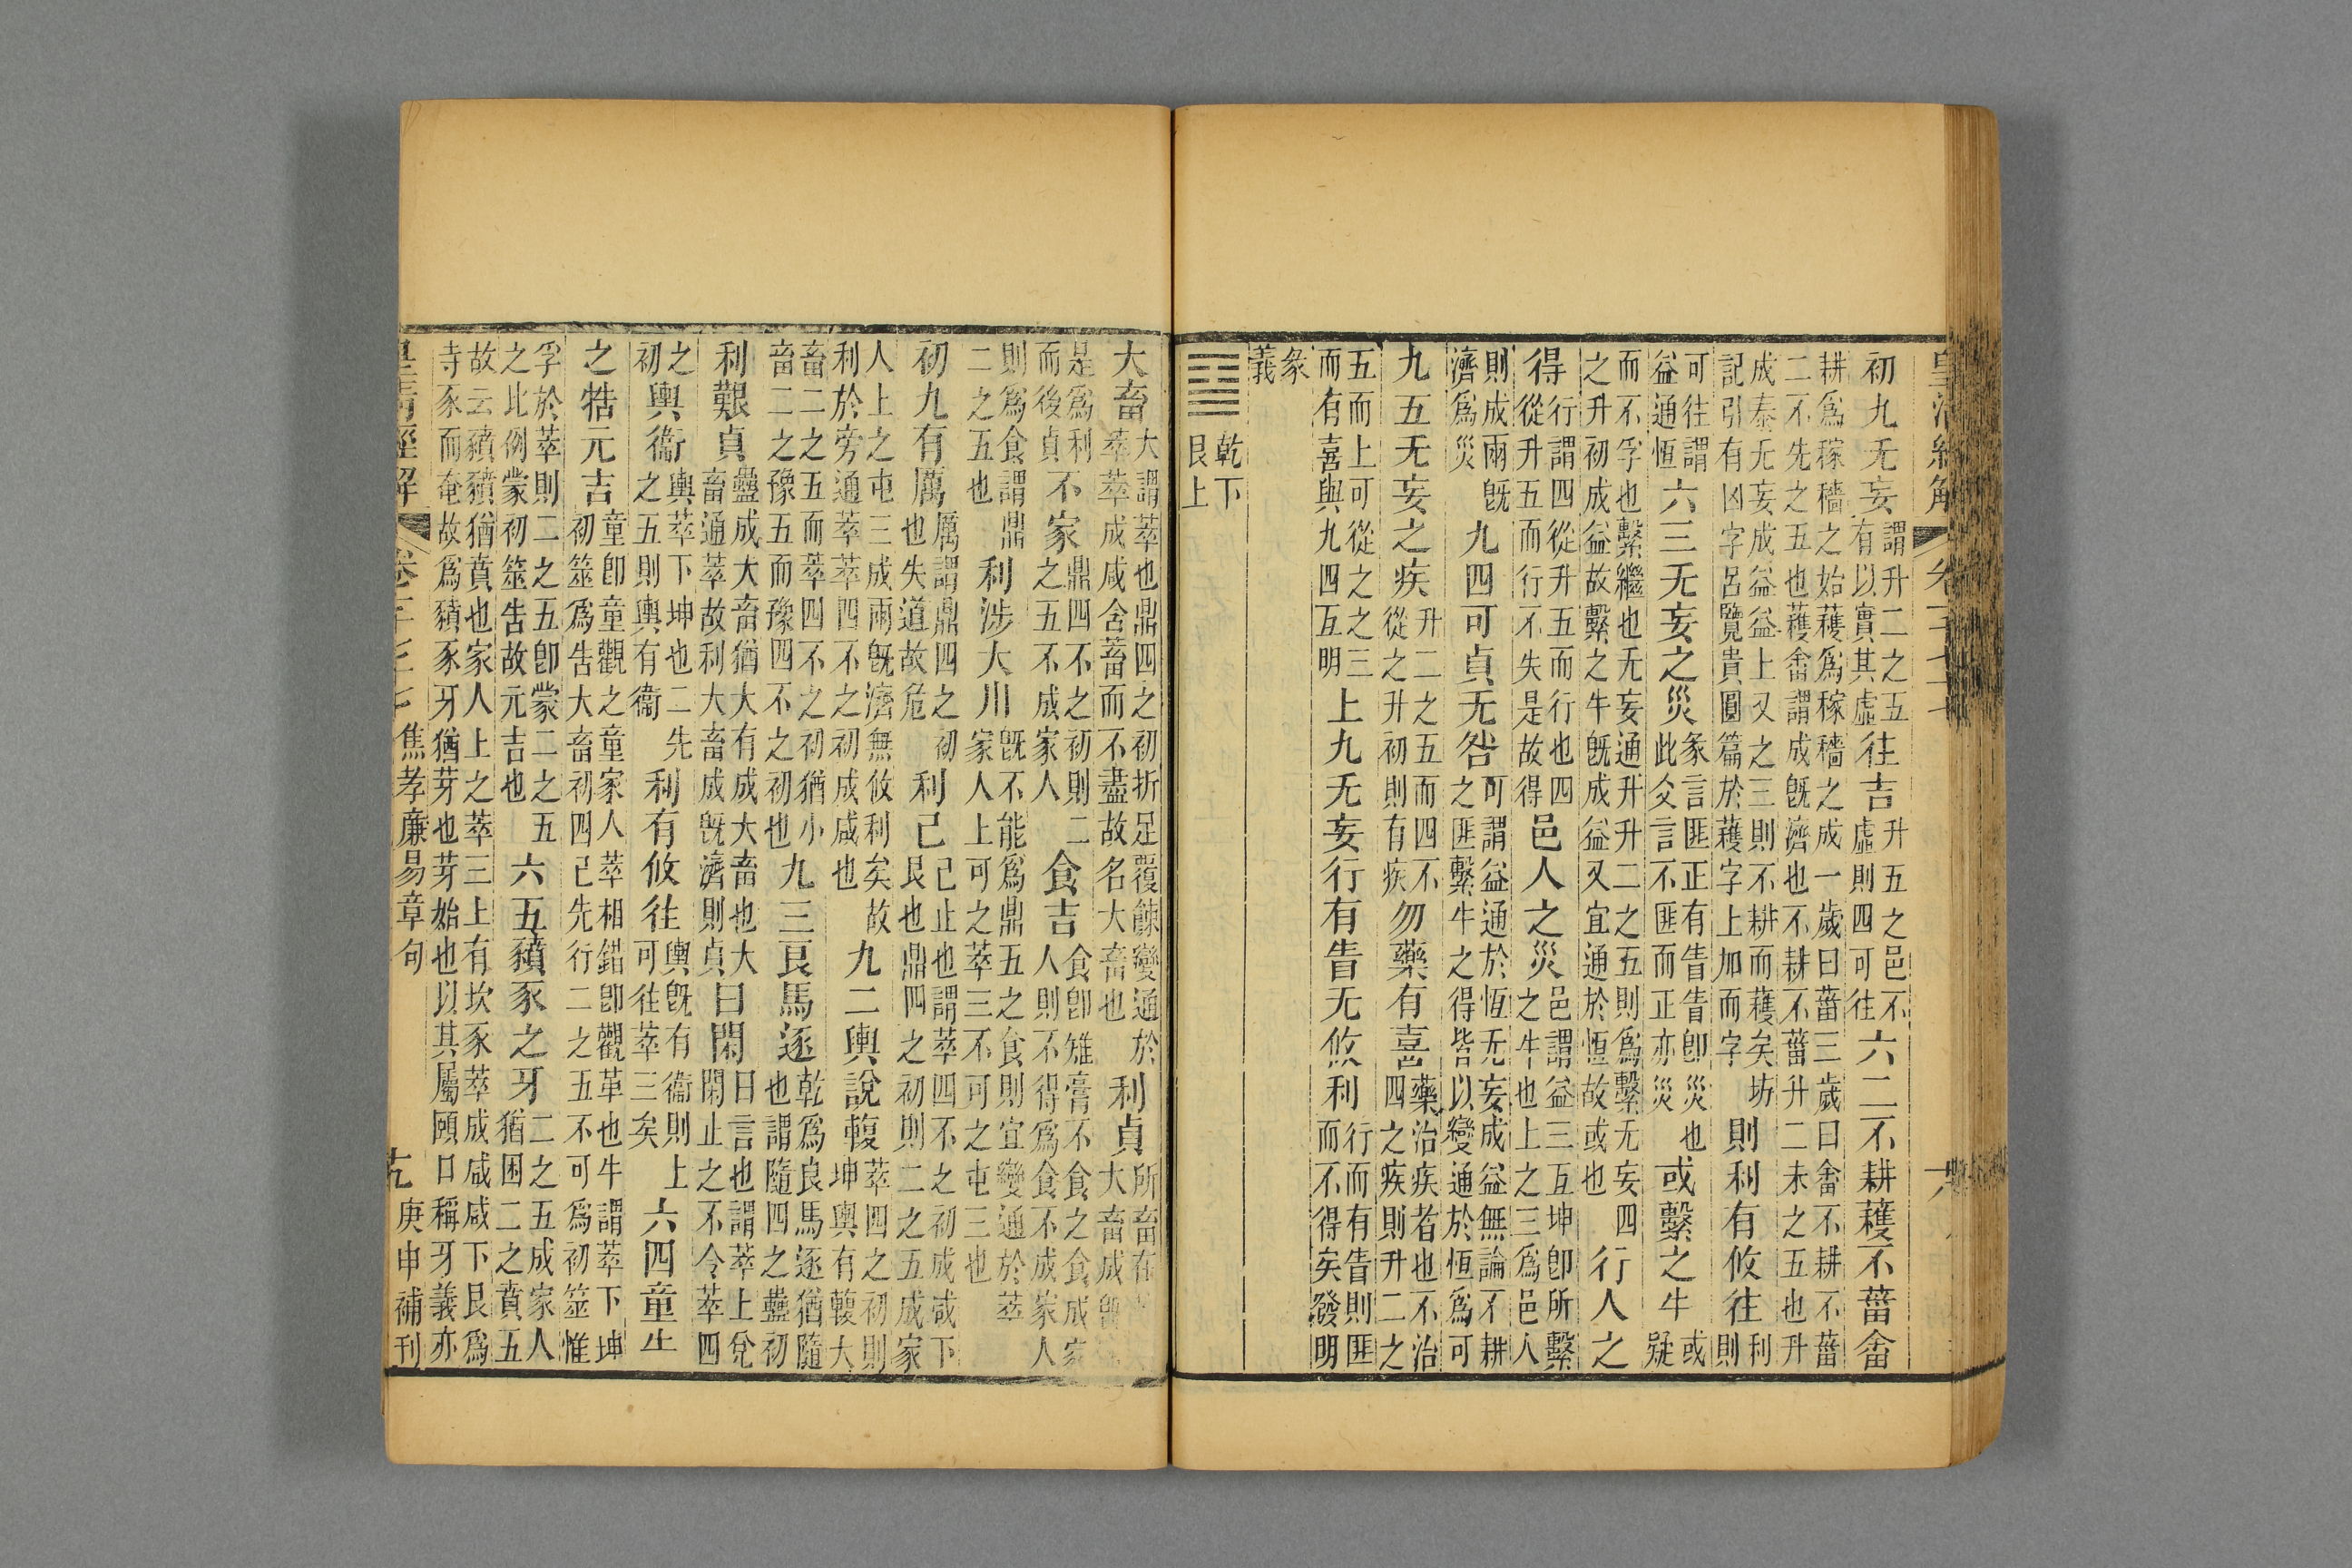 皇清經解
初九无妄謂升二之五有以實其虛往吉升五之邑不虛則四可往六二不耕穫不菑畬
耕爲稼穡之始穫爲稼穡之成一歲曰菑三歲曰畬不耕不菑
二不先之五也穫畬謂成既濟也不耕不菑升二未之五也升
成泰无妄成益益上又之三則不耕而穫矣坊記引有凶字呂覽貴圜篇於穫字上加而字則利有攸往利則
可往謂益通恒六三无妄之災彖言匪正有眚眚卽災也此爻言不匪而正亦災或繫之牛或疑
而不孚也繫繼也无妄通升升二之五則爲繫无妄四之升初成益故繫之牛既成益又宜通於恒故或也行人之
得行謂四從升五而行也四從升五而行不失是故得邑人之災邑謂益三互坤卽所繫之牛也上之三爲邑人
則成雨既濟爲災九四可貞无咎可謂益通於恆无妄成益無論不耕之匪繫牛之得皆以變通於恒爲可
九五无妄之疾升二之五而四不從之升初則有疾勿藥有喜藥治疾者也不治四之疾則升二之
五而上可從之之三而有喜與九四互明上九无妄行有眚无攸利行而有眚則匪而不得矣發明
彖義
䷙乾下艮上
大畜大謂萃也鼎四之初折足覆餗變通於萃萃成咸舍蓄而不盡故名大畜也利貞所畜在大畜成既
是爲利而後貞不家鼎四不之初則二之五不成家人食吉食卽雉膏不食之食成家人則不得爲食不成家人
則爲食謂鼎二之五也利涉大川既不能爲鼎五之食則宜變通於萃家人上可之萃三不可之屯三也
初九有厲厲謂鼎四之初也失道故危利己己止也謂萃四不之初成咸下艮也鼎四之初則二之五成家
人上之屯三成雨既濟無攸利矣故利於旁通萃萃四不之初成咸也九二輿說輹萃四之初則坤輿有輹大
畜二之五而萃四不之初猶小畜二之豫五而豫四不之初也九三良馬逐乾爲良馬逐猶隨也謂隨四之蠱初
利艱貞蠱成大畜猶大有成大畜也大畜通萃故利大畜成既濟則貞曰閑曰言也謂萃上兌閑止之不令萃四
之初輿衞輿萃下坤也二先之五則輿有衞利有攸往輿既有衞則上可往萃三矣六四童牛
之牿元吉童卽童觀之童家人萃相錯卽觀革也牛謂萃下坤初筮爲告大畜初四己先行二之五不可爲初筮惟
孚於萃則二之五卽蒙二之五之比例蒙初筮告故元吉也六五豶豕之牙二之五成家人猶困二之賁五
故云豶豶猶賁也家人上之萃三上有坎豕萃成咸咸下艮爲
寺豕而奄故爲豶豕牙猶芽也芽始也以其屬頤口稱牙義亦
皇清經解 卷 焦孝廉易章句 庚申補刊